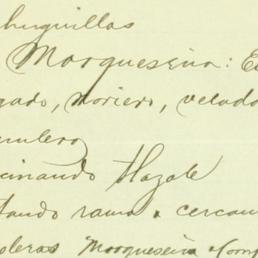 chuguillas
Marqueseña: E
gado, moriero, velado
mulero
cinando Hagale
tando rama a cercan
oleras "Marqueseña